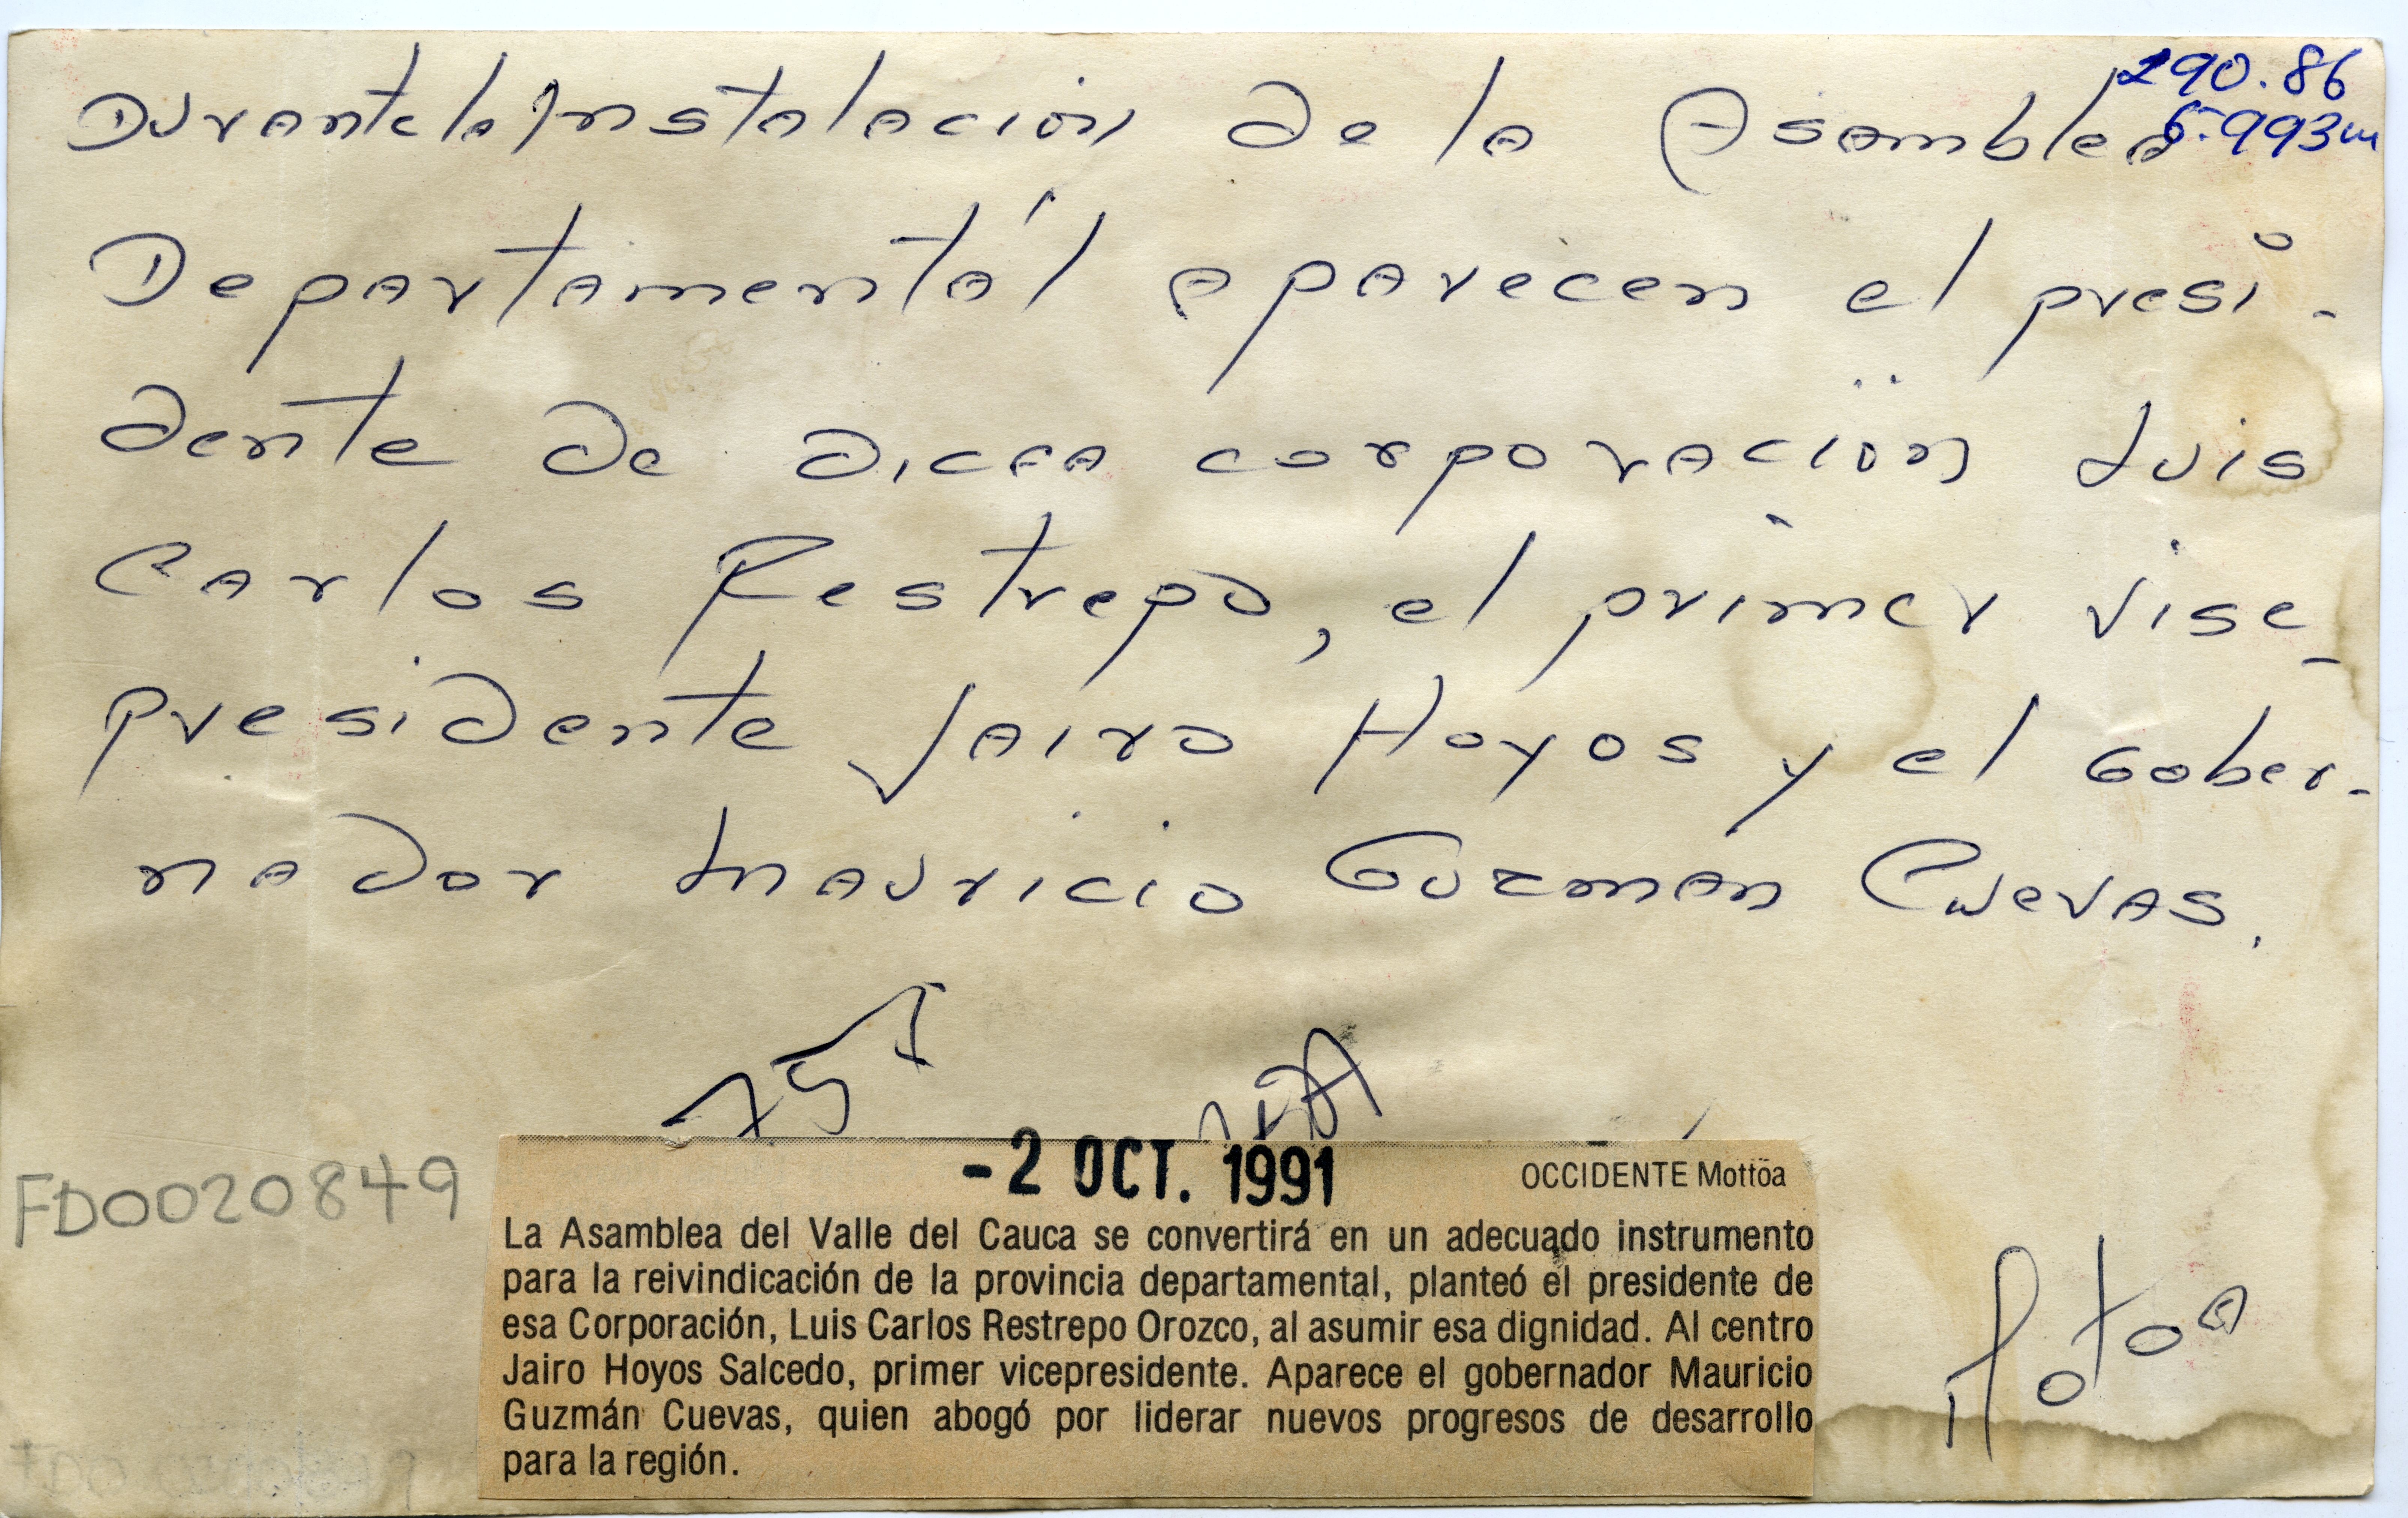 290.86
5.993m
Durante la Instalación de la Asamblea
Departamentál aparecen el presi-
dente de dicha corporación Luis
Carlos Restrepo, el primer vise-
presidente Jairo Hoyos y el Gober-
nador Mauricio Guzmán Cuevas.
FD0020849
-2 OCT. 1991
OCCIDENTE Mottöa
La Asamblea del Valle del Cauca se convertirá en un adecuado instrumento
para la reivindicación de la provincia departamental, planteó el presidente de
esa Corporación, Luis Carlos Restrepo Orozco, al asumir esa dignidad. Al centro
Jairo Hoyos Salcedo, primer vicepresidente. Aparece el gobernador Mauricio
Guzmán Cuevas, quien abogó por liderar nuevos progresos de desarrollo
para la región.